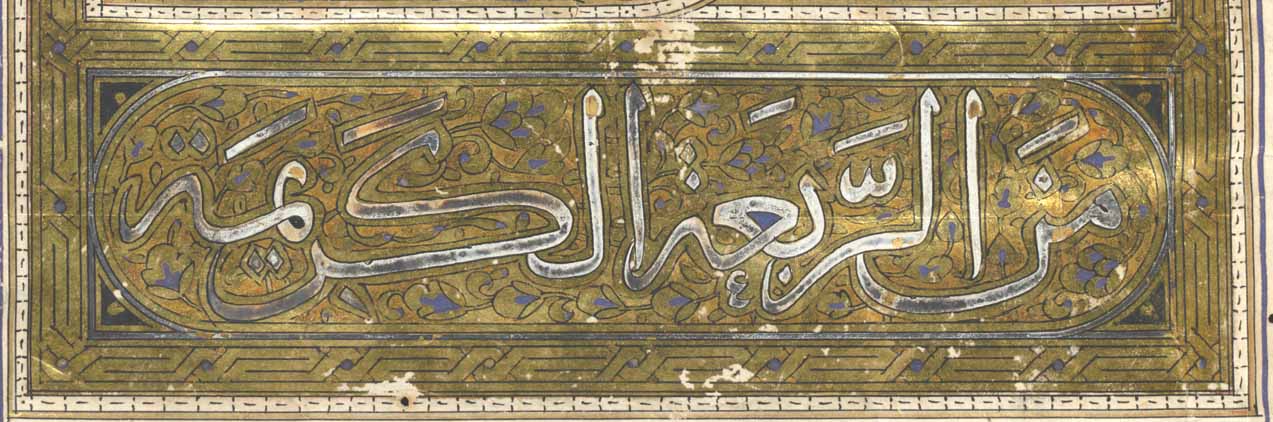 منَ الرَّبعَة الكَريمَة